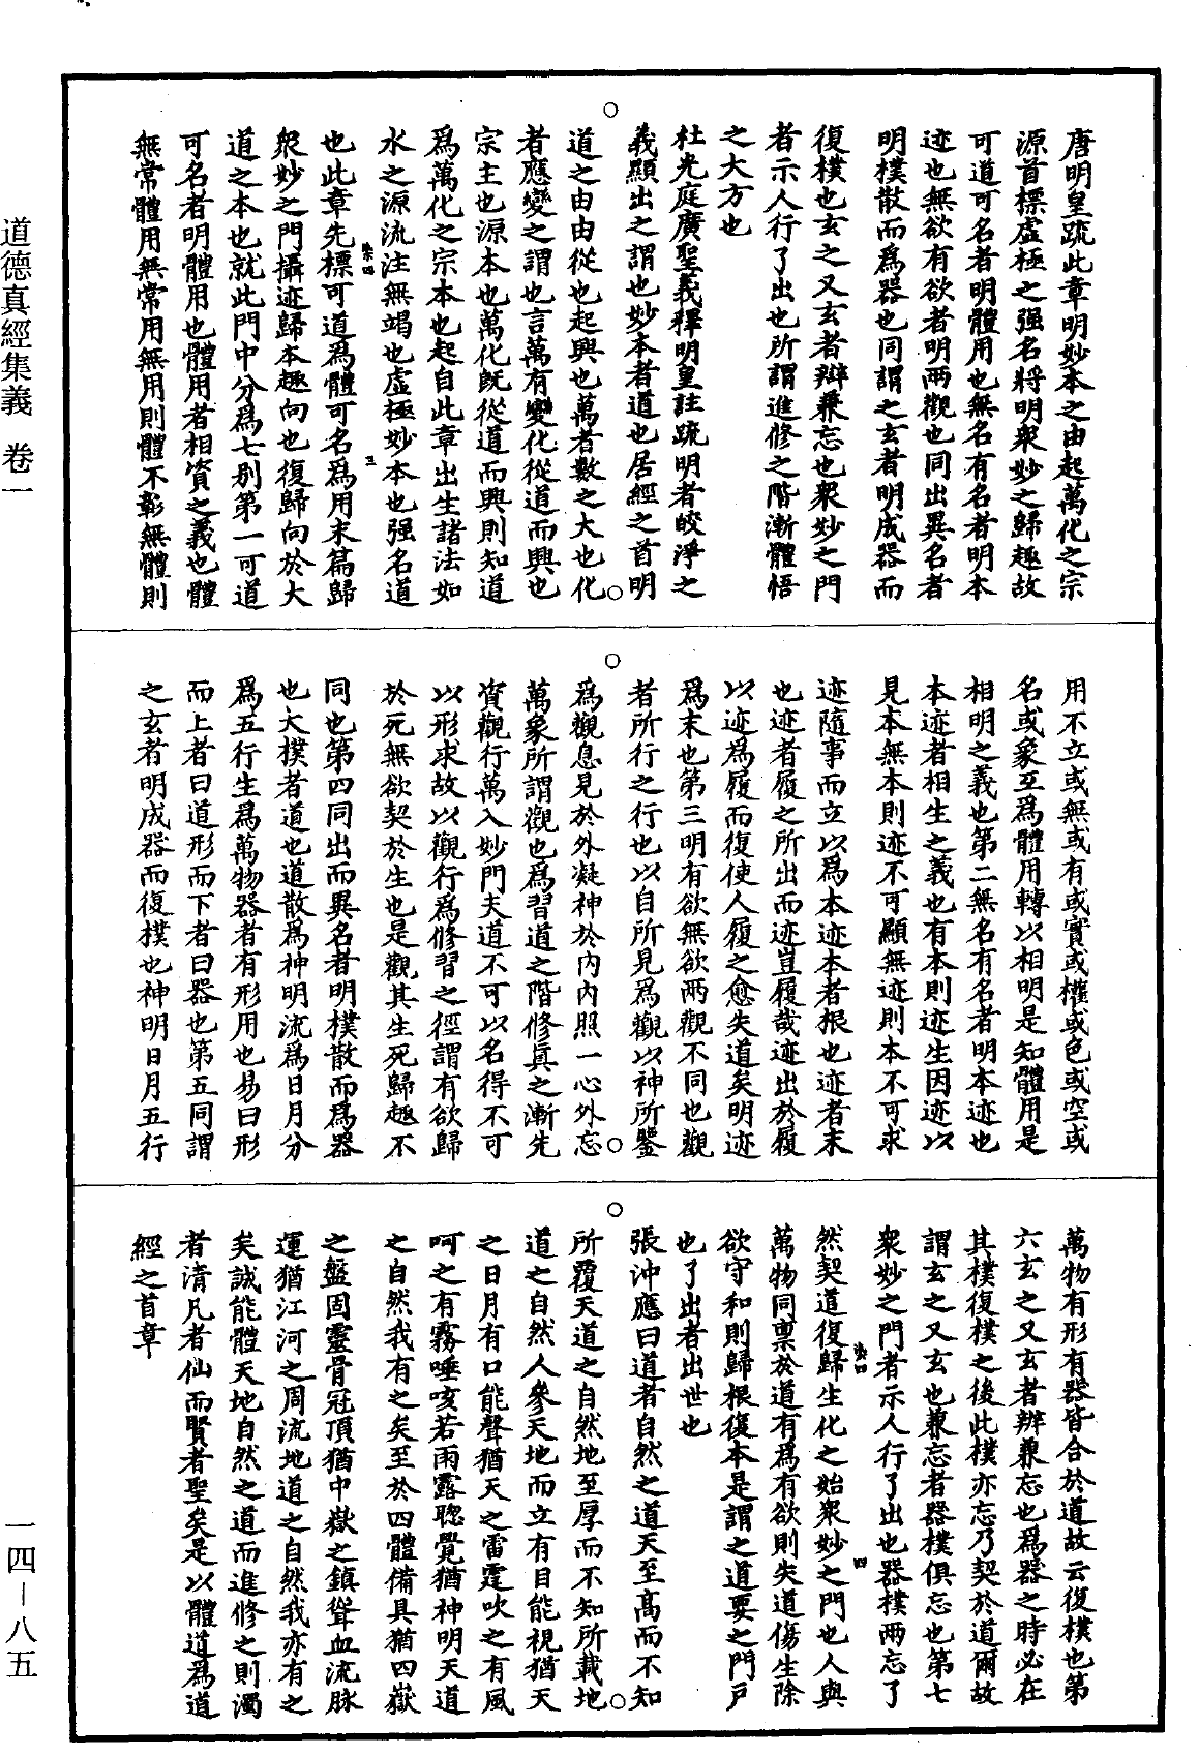 唐明皇疏此章明妙本之由起萬化之宗
源首標虛極之强名將明衆妙之歸趣故
可道可名者明體用也無名有名者明本
迹也無欲有欲者明兩觀也同出異名者
明樸散而爲器也同謂之玄者明成器而
復樸也玄之又玄者辯兼忘也衆妙之門
者示人行了出也所謂進修之階漸體悟
之大方也
杜光庭廣聖義釋明皇註疏明者皎淨之
義顯出之謂也妙本者道也居經之首明
道之由由從也起興也萬者數之大也化
者應變之謂也言萬有變化從道而興也
宗主也源本也萬化旣從道而興則知道
爲萬化之宗本也起自此章出生諸法如
水之源流注無竭也虛極妙本也强名道
也此章先標可道爲體可名爲用末篇歸
衆妙之門攝迹歸本趣向也復歸向於大
道之本也就此門中分爲七別第一可道
可名者明體用也體用者相資之義也體
無常體用無常用無用則體不彰無體則
用不立或無或有或實或權或色或空或
名或象互爲體用轉以相明是知體用是
相明之義也第二無名有名者明本迹也
本迹者相生之義也有本則迹生因迹以
見本無本則迹不可顯無迹則本不可求
迹隨事而立以爲本迹本者根也迹者末
也迹者履之所出而迹豈履哉迹出於履
以迹爲履而復使人履之愈失道矣明迹
爲末也第三明有欲無欲兩觀不同也觀
者所行之行也以自所見爲觀以神所鑒
爲觀息見於外凝神於內內照一心外忘
萬象所謂觀也爲習道之階修眞之漸先
資觀行萬入妙門夫道不可以名得不可
以形求故以觀行爲修習之徑謂有欲歸
於死無欲契於生也是觀其生死歸趣不
同也第四同出而異名者明樸散而爲器
也大樸者道也道散爲神明流爲日月分
爲五行生爲萬物器者有形用也易曰形
而上者曰道形而下者曰器也第五同謂
之玄者明成器而復樸也神明日月五行
萬物有形有器皆合於道故云復樸也第
六玄之又玄者辨兼忘也爲器之時必在
其樸復樸之後此樸亦忘乃契於道爾故
謂玄之又玄也兼忘者器樸俱忘也第七
衆妙之門者示人行了出也器樸兩忘了
然契道復歸生化之始衆妙之門也人與
萬物同禀於道有爲有欲則失道傷生除
欲守和則歸根復本是謂之道要之門戶
也了出者出世也
張沖應曰道者自然之道天至高而不知
所覆天道之自然地至厚而不知所載地
道之自然人參天地而立有目能視猶天
之日月有口能聲猶天之雷霆吹之有風
呵之有霧唾咳若雨露聰覺猶神明天道
之自然我有之矣至於四體備具猶四嶽
之盤固靈骨冠頂猶中嶽之鎮聳血流脉
運猶江河之周流地道之自然我亦有之
矣誠能體天地自然之道而進修之則濁
者清凡者仙而賢者聖矣是以體道爲道
經之首章
道德真經集義 卷一
一四—八五